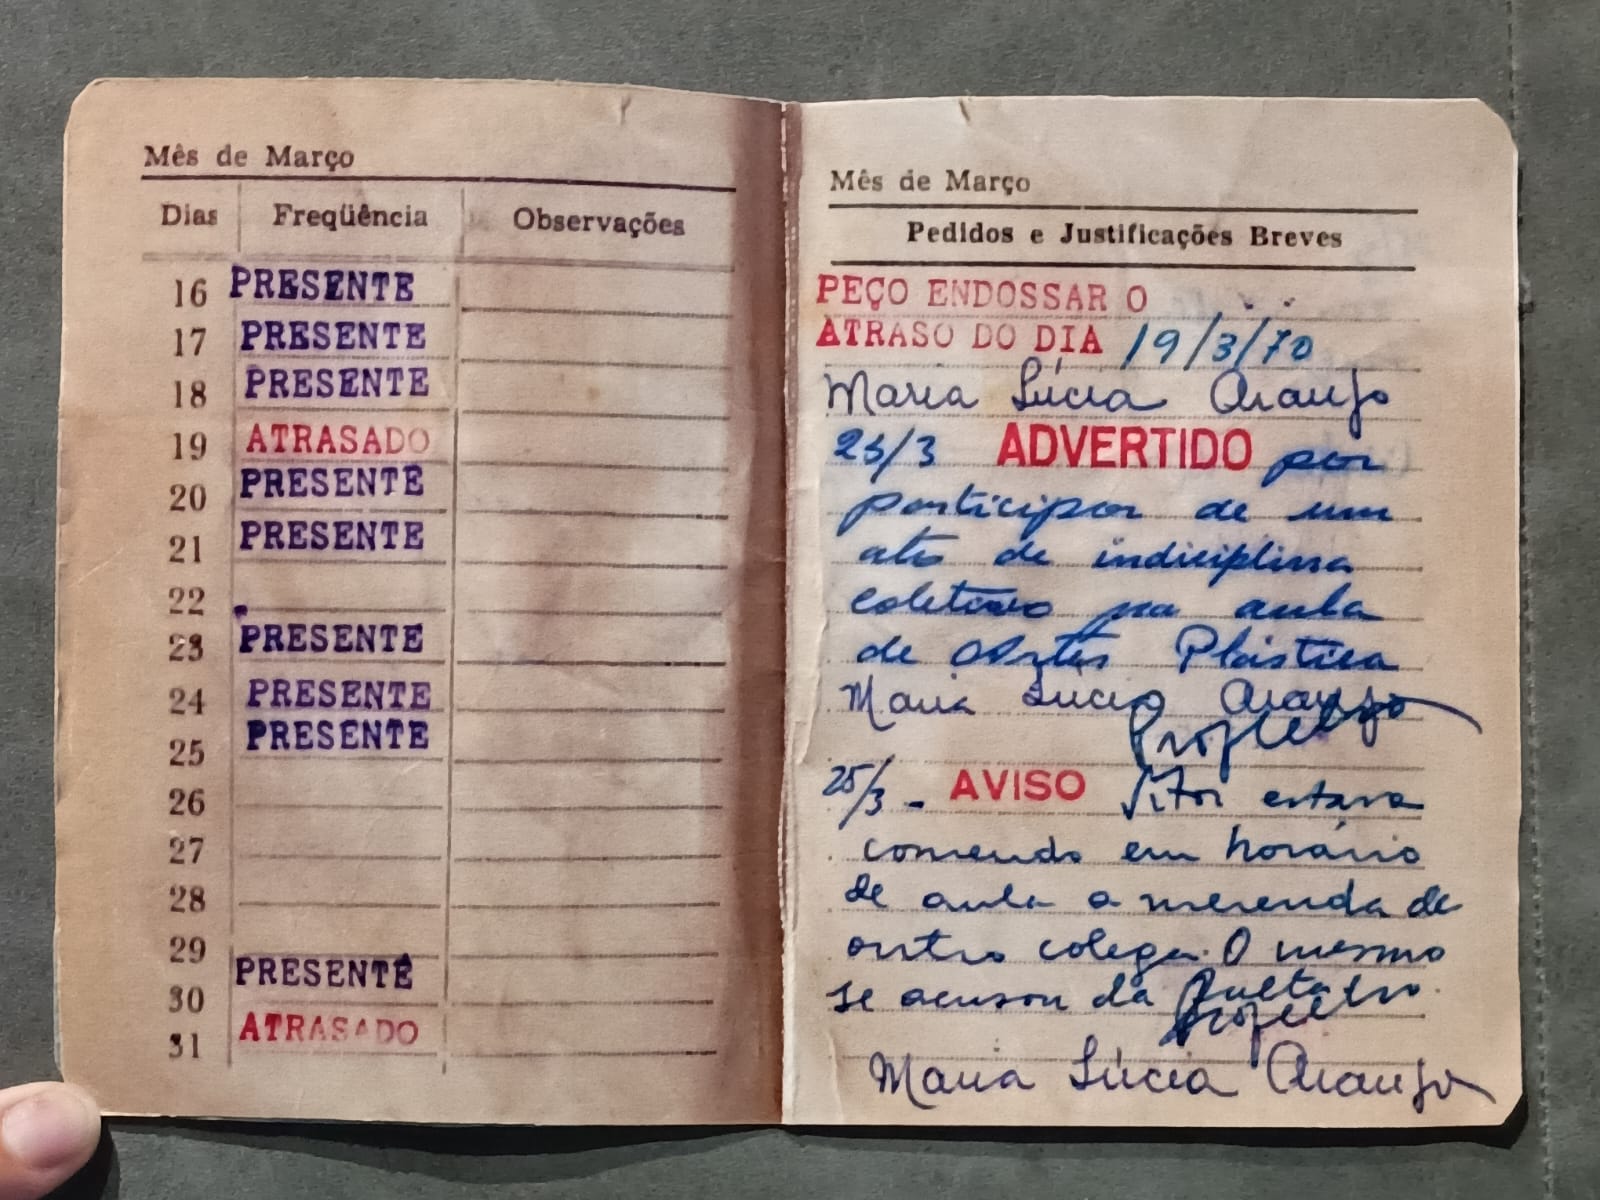 Mês de Março
Dias Freqüência Observações
16 PRESENTE
17 PRESENTE
18 PRESENTE
19 ATRASADO
20 PRESENTE
21 PRESENTE
22
23 PRESENTE
24 PRESENTE
25 PRESENTE
26
27
28
29
30 PRESENTE
31 ATRASADO
Mês de Março
Pedidos e Justificações Breves
PEÇO ENDOSSAR O
ATRASO DO DIA 19/3/70
Maria Lúcia Araujo
23/3 ADVERTIDO por
participar de um
ato de indiciplina
coletivo na aula
de Artes Plástica
Maria Lúcia Araujo
25/3 - AVISO Vitor estava
comendo em horário
de aula a merenda de
outro colega. O mesmo
se acusou da falta
Maria Lúcia Araujo